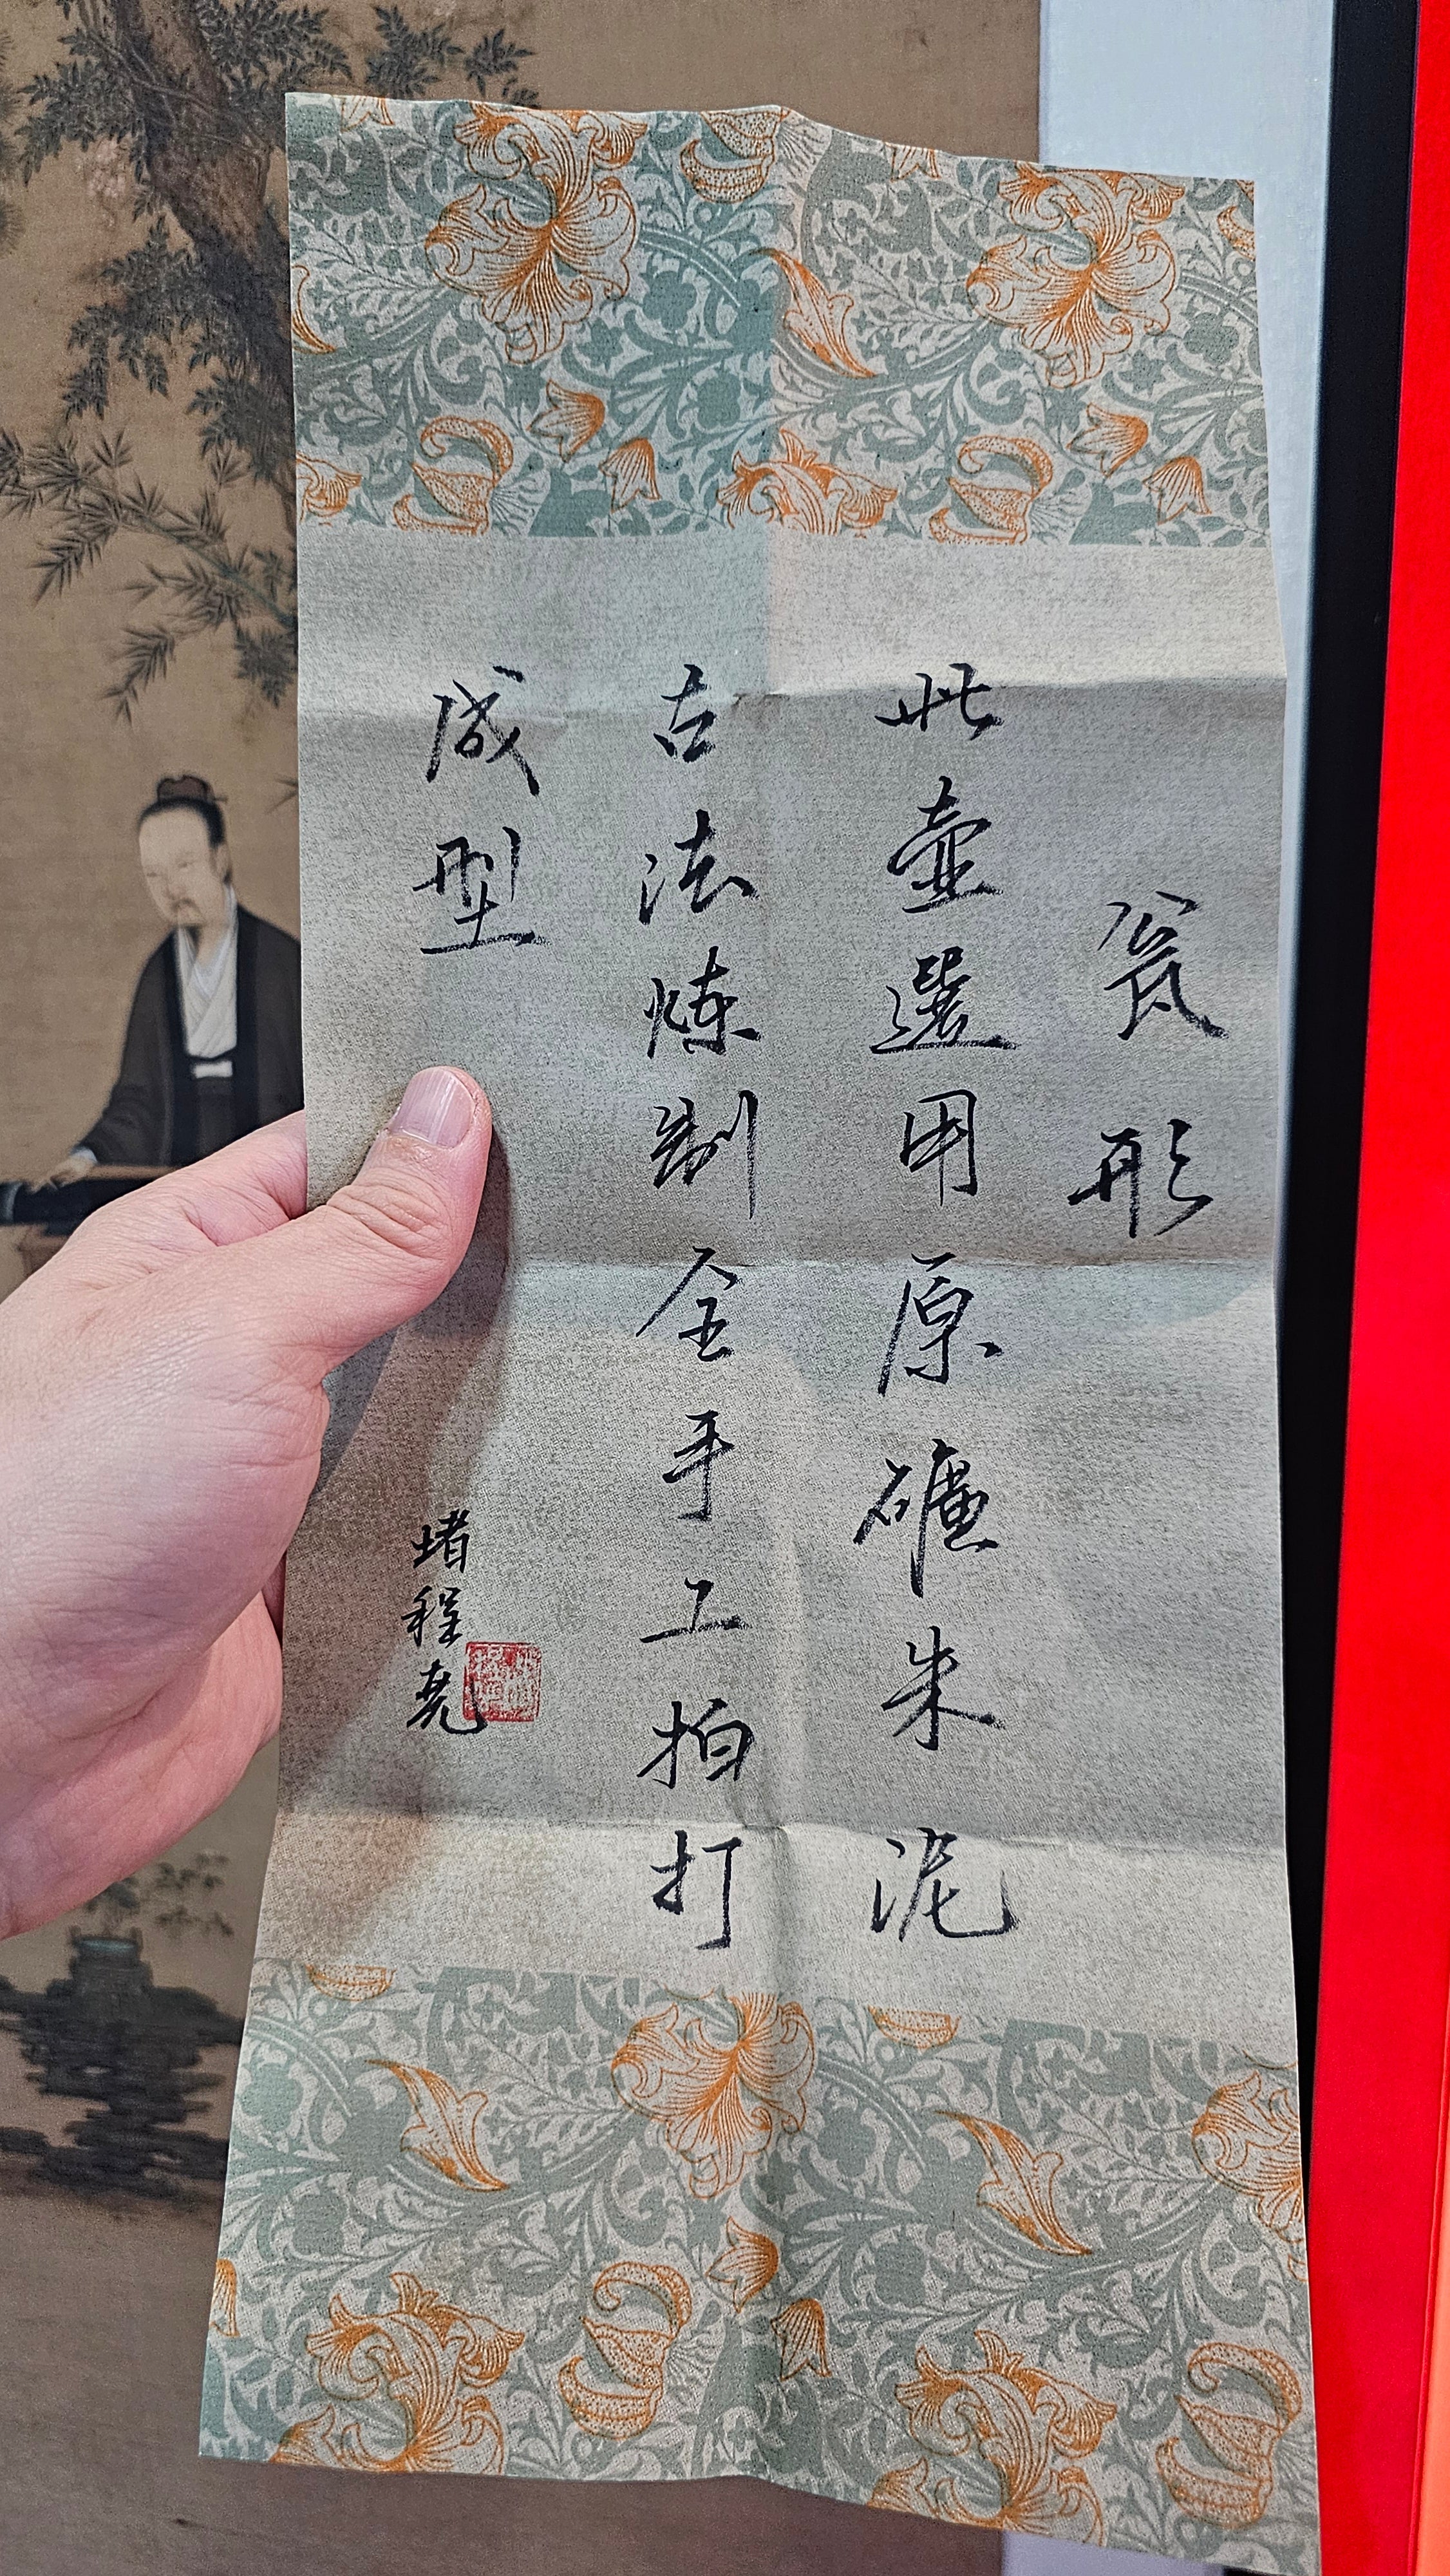 瓮形
此壶選用原礦朱泥
古法炼制全手工拍打
成型
堵程尧